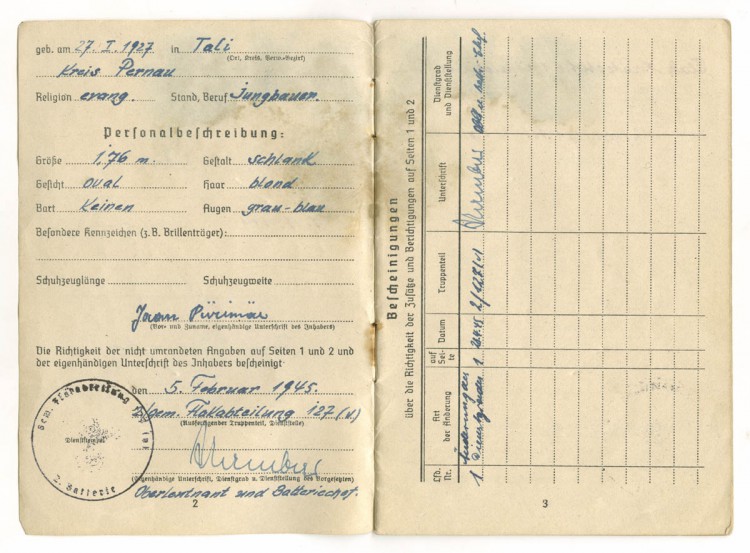 geb. am 27. I. 1927 in Tali
(Ort, Kreis, Verw.-Bezirk)
Kreis Pernau
Religion evang. Stand, Beruf Jungbauer.
Personalbeschreibung:
Größe 1,76 m. Gestalt schlank
Gesicht oval Haar blond
Bart Keinen Augen grau-blau
Besondere Kennzeichen (z. B. Brillenträger):
Schuhzeuglänge Schuhzeugweite
Jaan Pürimäe
(Vor- und Zuname, eigenhändige Unterschrift des Inhabers)
Die Richtigkeit der nicht umrandeten Angaben auf Seiten 1 und 2 und
der eigenhändigen Unterschrift des Inhabers bescheinigt
den 5. Februar 1945.
2/gem. Flakabteilung 127 (v)
(Ausfertigender Truppenteil, Dienststelle)
Gem. Flakabteilung
Dienststempel
2. Batterie
(Eigenhändige Unterschrift, Dienstgrad u. Dienststellung des Vorgesetzten)
Oberleutnant und Batteriechef.
2
Bescheinigungen
über die Richtigkeit der Zusätze und Berichtigungen auf Seiten 1 und 2
Lfd. Nr.
Art der Änderung
auf Seite
Datum
Truppenteil
Unterschrift
Dienstgrad und Dienststellung
1 Änderung an Dienstgraden 1.
3